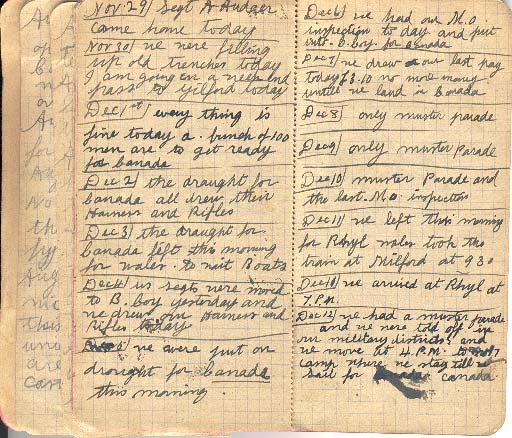 Nov 29/ Segt A Audger
came home today
Nov 30/ we were filling
up old trenches today
I am going on a week end
pass to Gilford today
Dec 1st/ every thing is
fine today a bunch of 100
men are to get ready
for Canada
Dec 2/ the draught for
Canada all drew their
Harness and Rifles
Dec 3/ the draught for
Canada left this morning
for wales. to wait Boats
Dec 4/ us segts were moved
to B. boy yesterday and
we drew our Harness and
Rifles today
we were put on
draught for Canada
this morning.
Dec 6/ we had our M.O.
inspection to day and put
into B. boy for Canada
Dec 7/ we drew our last pay
today £3.10 no more money
untill we land in Canada
Dec 8/ only muster parade
Dec 9/ only muster Parade
Dec 10/ muster Parade and
the last M.O. inspection
Dec 11/ we left this morning
for Rhyl wales took the
train at Milford at 9 30
we arrived at Rhyl at
7.P.M.
Dec 12/ we had a muster parade
and we were told off in
our military districts and
we move at 4.P.M. to
camp where we stay till we
sail for Canada